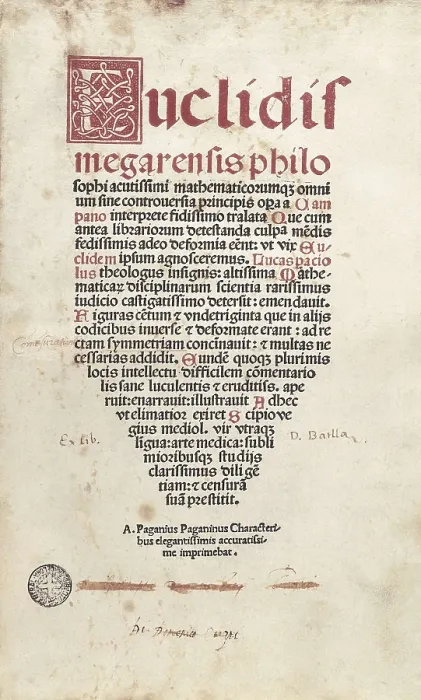 Euclidis
megarensis philo
sophi acutissimi mathematicorumqʒ omni
um sine controversia principis op̄a a Cam
pano interprete fidissimo tralata Que cum
antea librariorum detestanda culpa mēdis
fedissimis adeo deformia eēnt: vt vix Eu-
clidem ipsum agnosceremus. Lucas pacio
lus theologus insignis: altissima Mathe-
maticaꝝ disciplinarum scientia rarissimus
iudicio castigatissimo detersit: emendauit.
Figuras cētum ⁊ vndetriginta que in alijs
codicibus inuerse ⁊ deformate erant: ad re
ctam symmetriam concīnauit: ⁊ multas ne
cessarias addidit. Eundē quoqʒ plurimis
locis intellectu difficilem cōmentario
lis sane luculentis ⁊ eruditiss. ape
ruit: enarrauit: illustrauit Adhec
vt elimatior exiret Scipio ve
gius mediol. vir vtraqʒ
lingua: arte medica: subli
mioribusqʒ studijs
clarissimus diligē
tiam: ⁊ censurā
suā prestitit.
Ex lib. D. Bailla
A. Paganius Paganinus Characteri-
bus elegantissimis accuratissi-
me imprimebat.